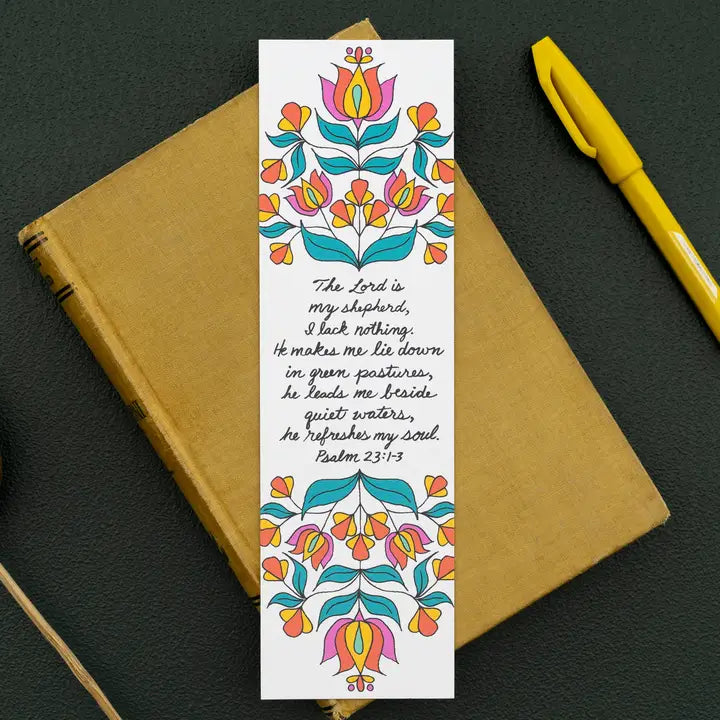 The Lord is
my shepherd,
I lack nothing.
He makes me lie down
in green pastures,
he leads me beside
quiet waters,
he refreshes my soul.
Psalm 23:1-3